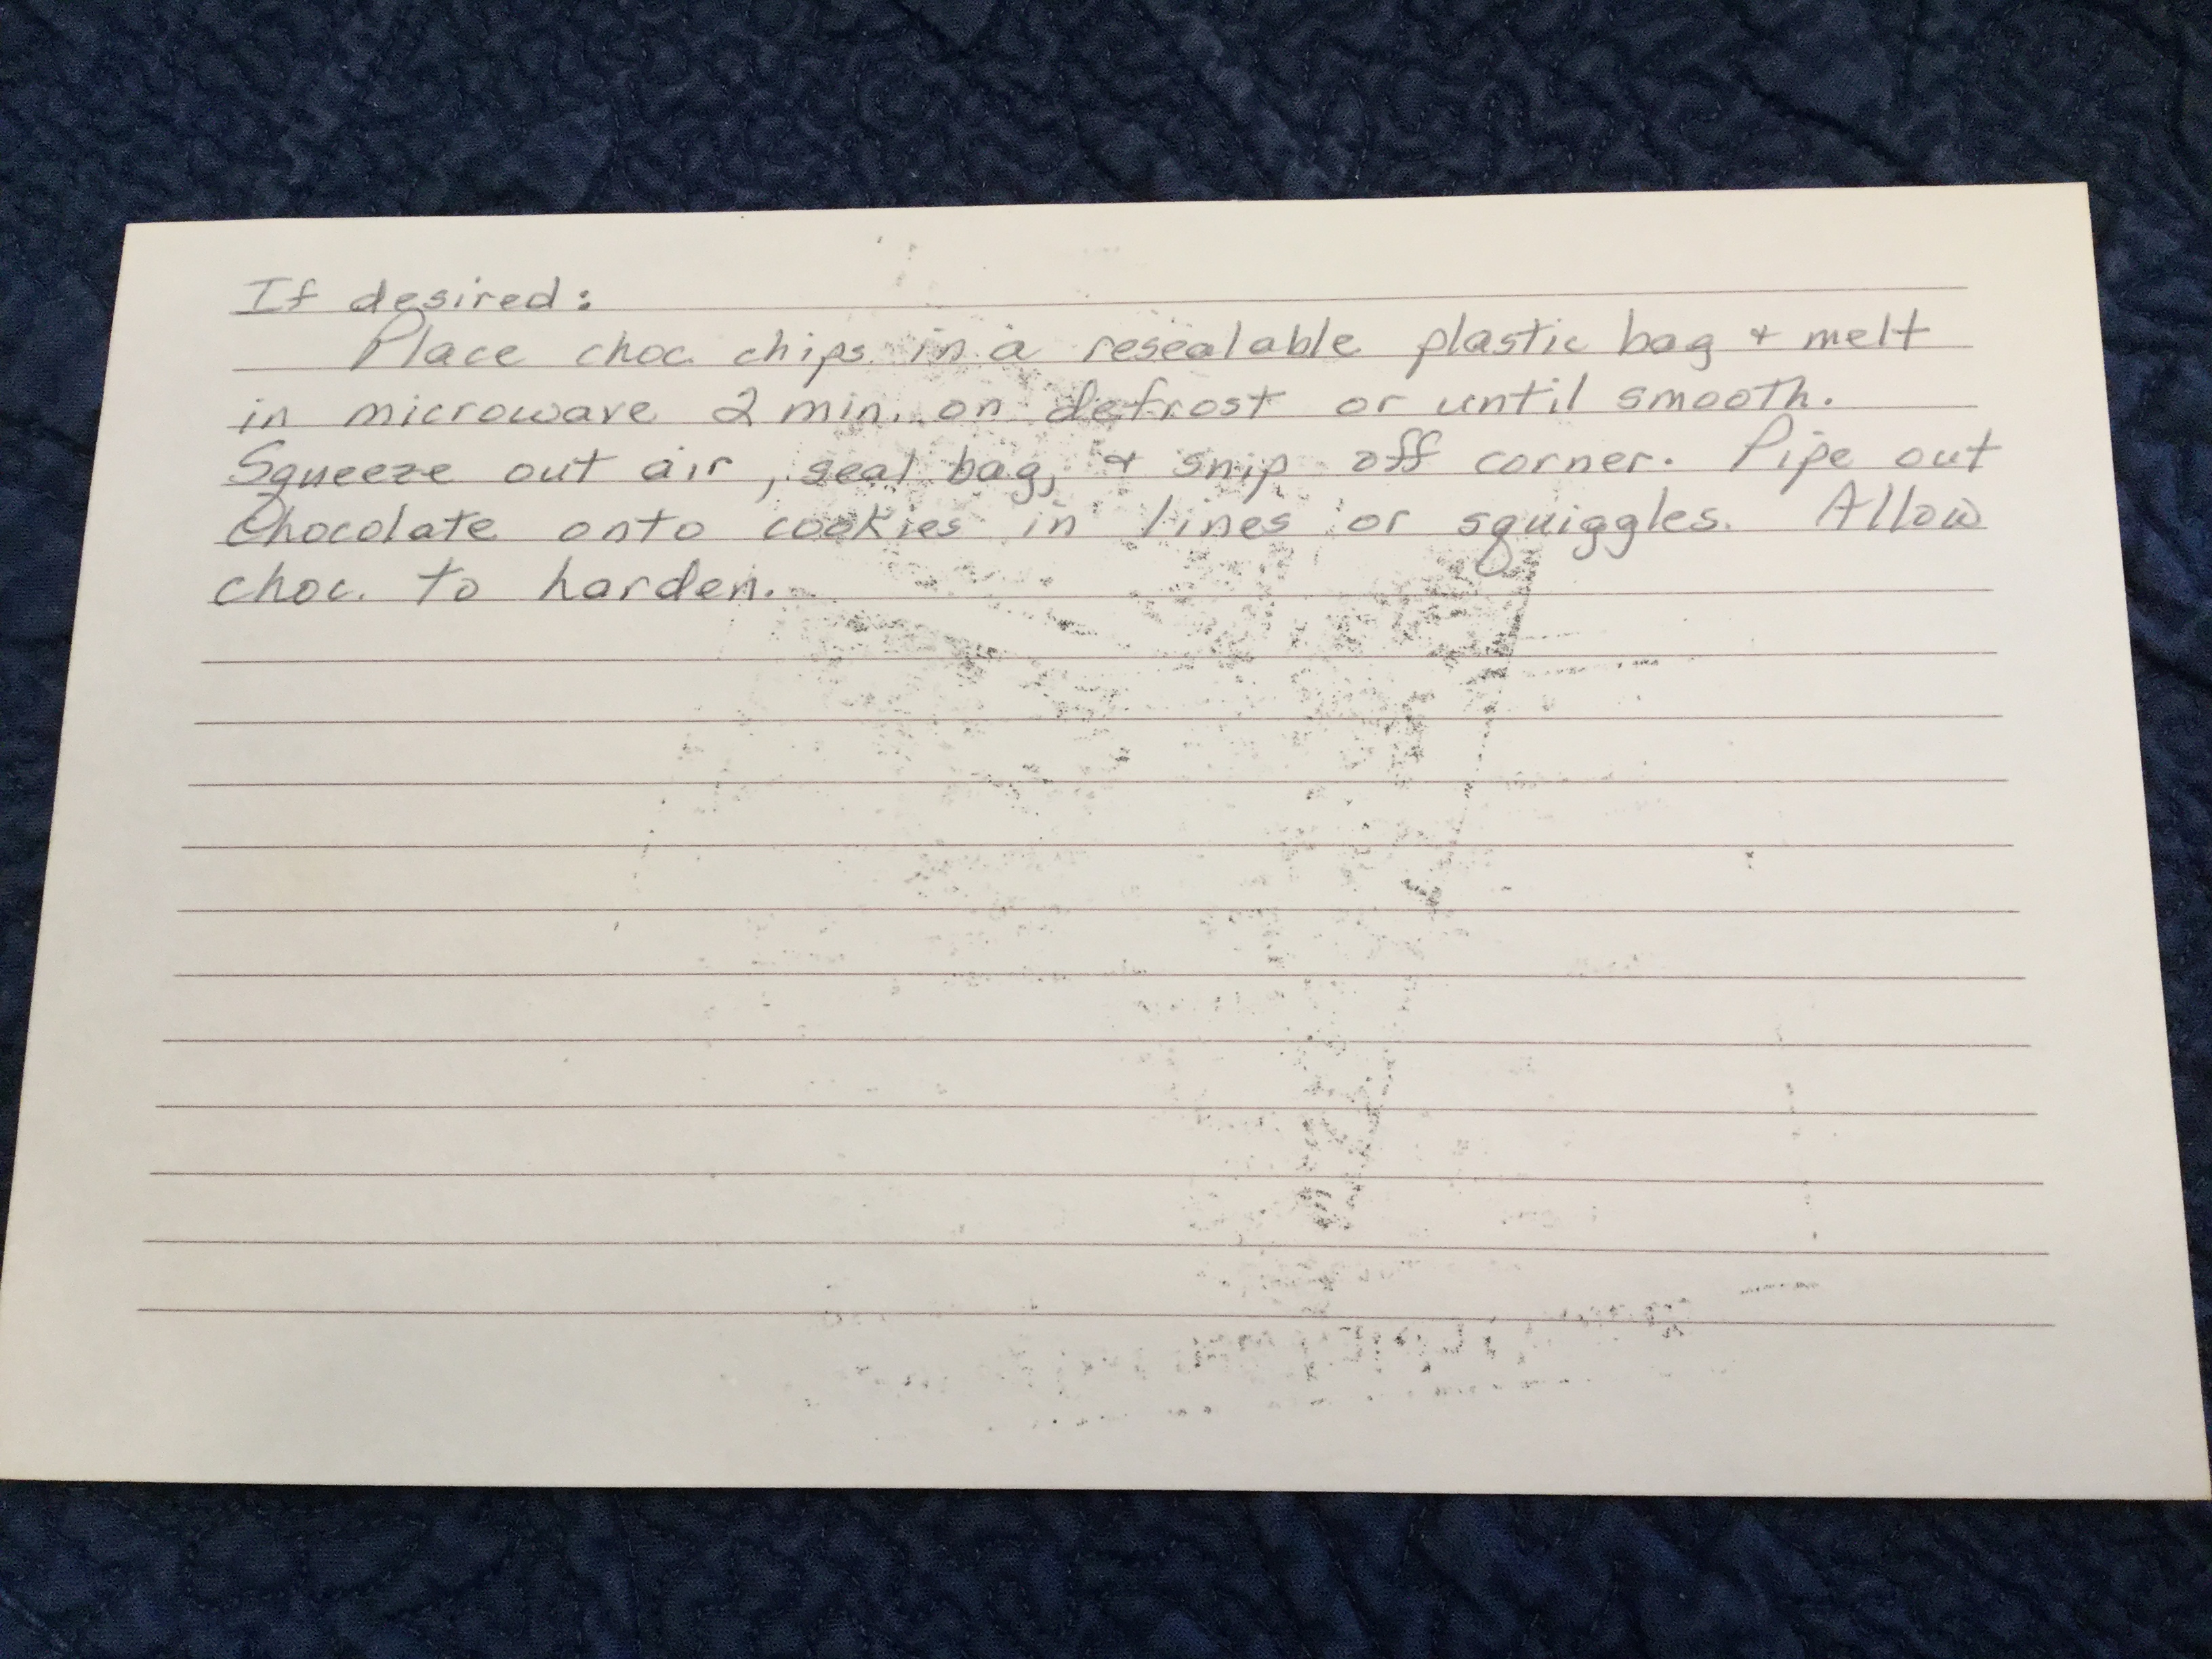 If desired:
Place choc. chips in a resealable plastic bag & melt
in microwave 2 min. on defrost or until smooth.
Squeeze out air, seal bag, & snip off corner. Pipe out
chocolate onto cookies in lines or squiggles. Allow
choc. to harden.